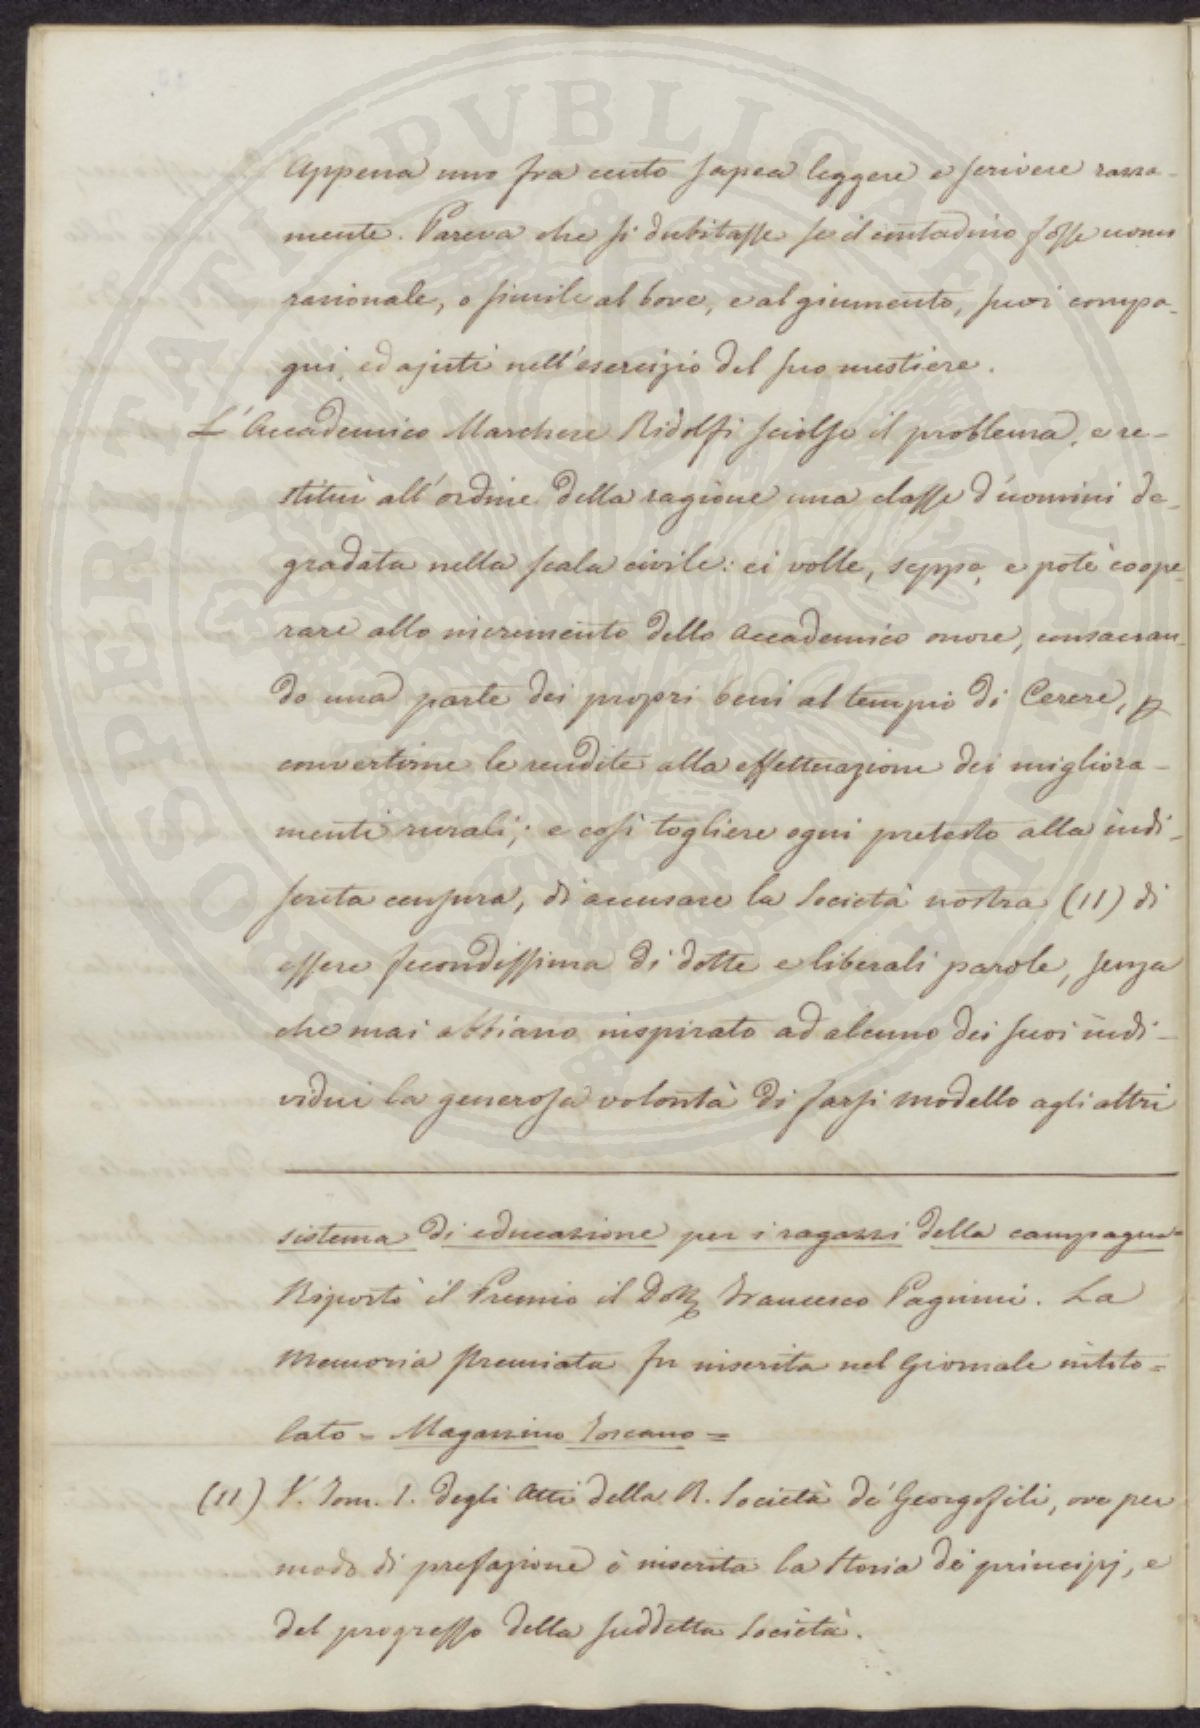 Appena uno fra cento sapea leggere e scrivere rozza-
mente. Pareva che si dubitasse se il contadino fosse uomo
razionale, o simile al bove, e al giumento, suoi compa-
gni, ed ajuti nell'esercizio del suo mestiere.
L'Accademico Marchese Ridolfi sciolse il problema, e re-
stituì all'ordine della ragione una classe d'uomini de-
gradata nella scala civile: ei volle, seppe, e potè coope-
rare allo incremento dello Accademico onore, consacran-
do una parte dei propri beni al tempio di Cerere, p
convertirne le rendite alla effettuazione dei migliora-
menti rurali; e così togliere ogni pretesto alla indi-
screta censura, di accusare la Società nostra (11) di
essere fecondissima di dotte e liberali parole, senza
che mai abbiano inspirato ad alcuno dei suoi indi-
vidui la generosa volontà di farsi modello agli altri
sistema di educazione per i ragazzi della campagna=
Riportò il Premio il Dott Francesco Pagnini. La
Memoria premiata fu inserita nel Giornale intito=
lato = Magazzino Toscano =
(11) V. Tom. I. degli Atti della R. Società de' Georgofili, ove per
modo di prefazione è inserita la Storia de' principj, e
del progresso della suddetta Società.
PROSPERITATI PVBLICAE AVGENDAE